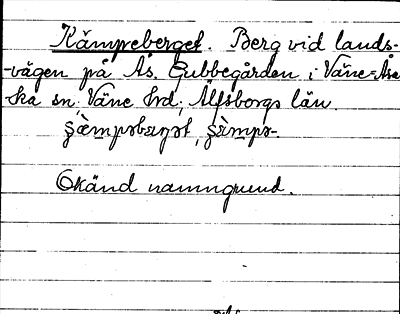 Kämpeberget. Berg vid lands-
-vägen på Ås, Gubbegården i Väne-Åsa
ka sn, Väne hrd, Älfsborgs län.
Okänd namngrund.